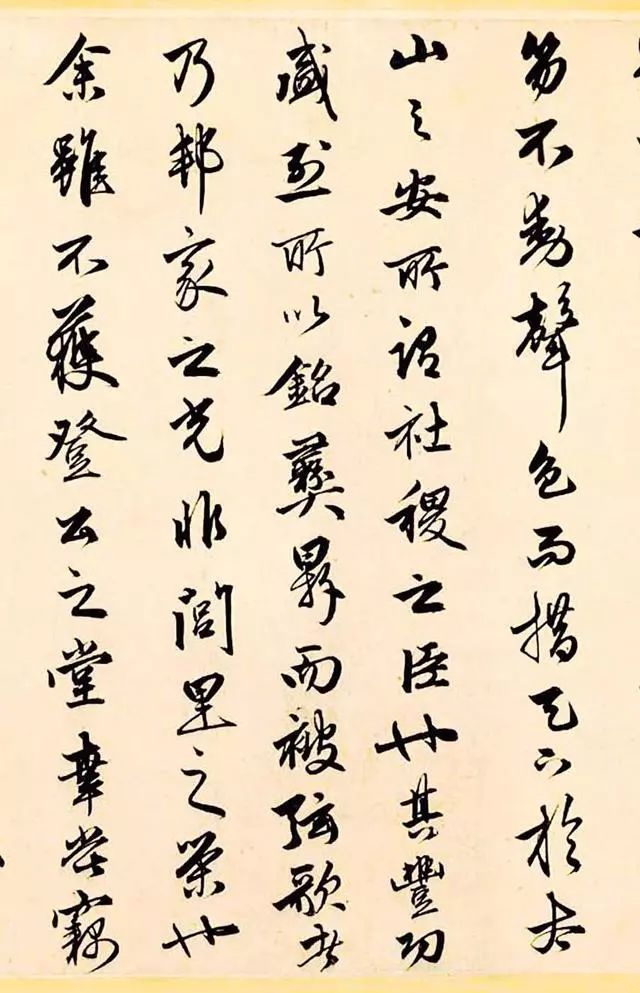 笏不動聲色而措天下於太
山之安所謂社稷之臣也其豐功
盛烈所以銘彝鼎而被弦歌者
乃邦家之光非閭里之榮也
余雖不獲登公之堂幸嘗竊